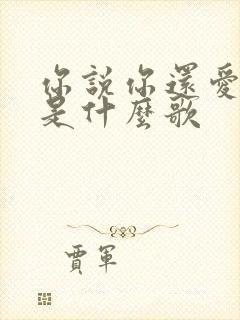 你說你還愛
是什麼歌
賈軍